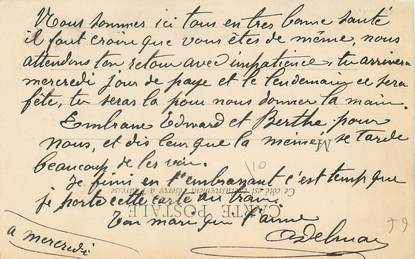 Nous sommes ici tous en tres bonne santé
il faut croire que vous êtes de même, nous
attendons ton retour avec impatience, tu arrivera
mercredi jour de paye et le lendemain ce sera
fête, tu seras la pour nous donner la main.
Embrasse Edward et Berthe pour
nous, et dis leur que la mémé se tarde
beaucoup de les voir.
Je finis en t'embrassant c'est temps que
je porte cette carte au train.
CARTE POSTALE
Ton mari qui t'aime
a mercredi